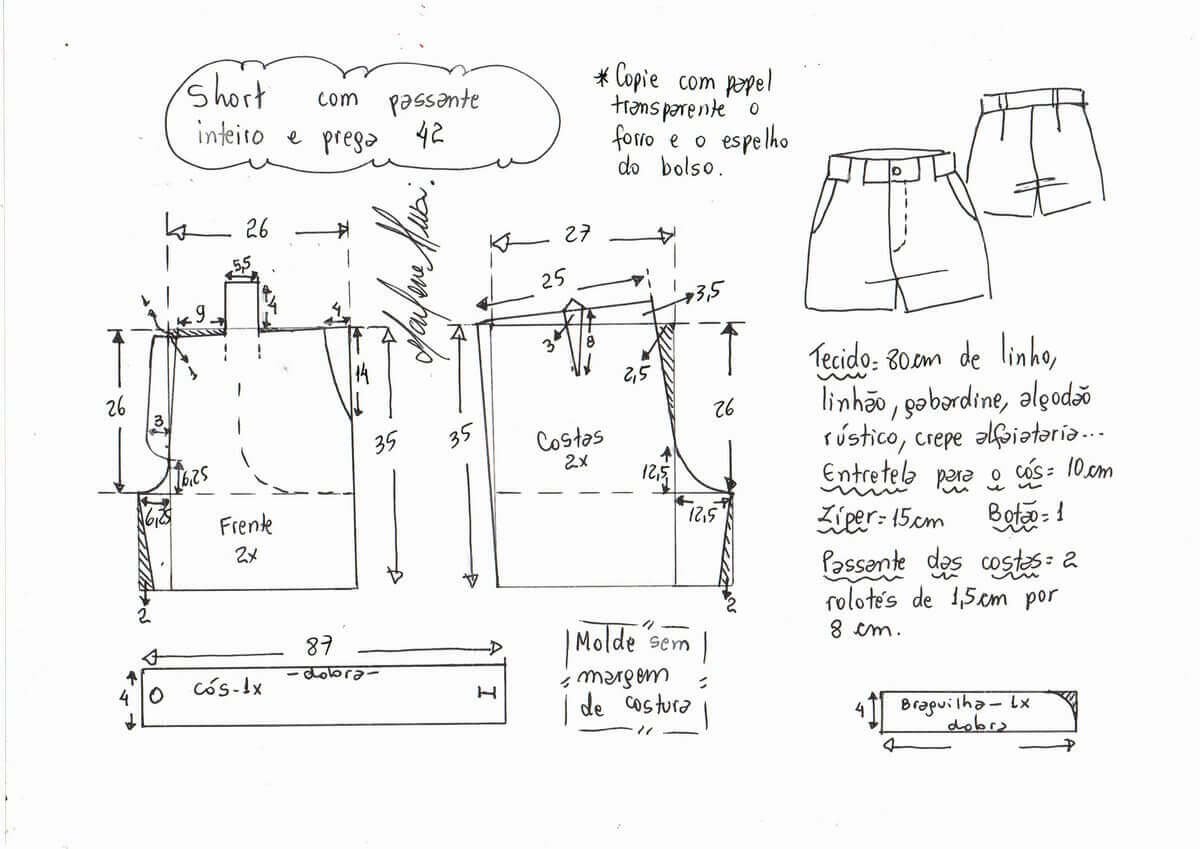 Short com passante
inteiro e prega 42
* Copie com papel
transparente o
forro e o espelho
do bolso.
Marlene Mukai.
26
5,5
9
4
4
1
1
26
3
6,25
6,25
14
35
Frente
2x
2
27
25
3,5
3
8
2,5
35
Costas
2x
26
12,5
12,5
2
Tecido= 80cm de linho,
linhão, gabardine, algodão
rústico, crepe alfaiataria...
Entretela para o cós= 10cm
Zíper= 15cm Botão= 1
Passante das costas= 2
rolotés de 1,5cm por
8 cm.
87
-dobra-
4
cós-1x
Molde sem
margem
de costura
4
Braguilha- 1x
dobra